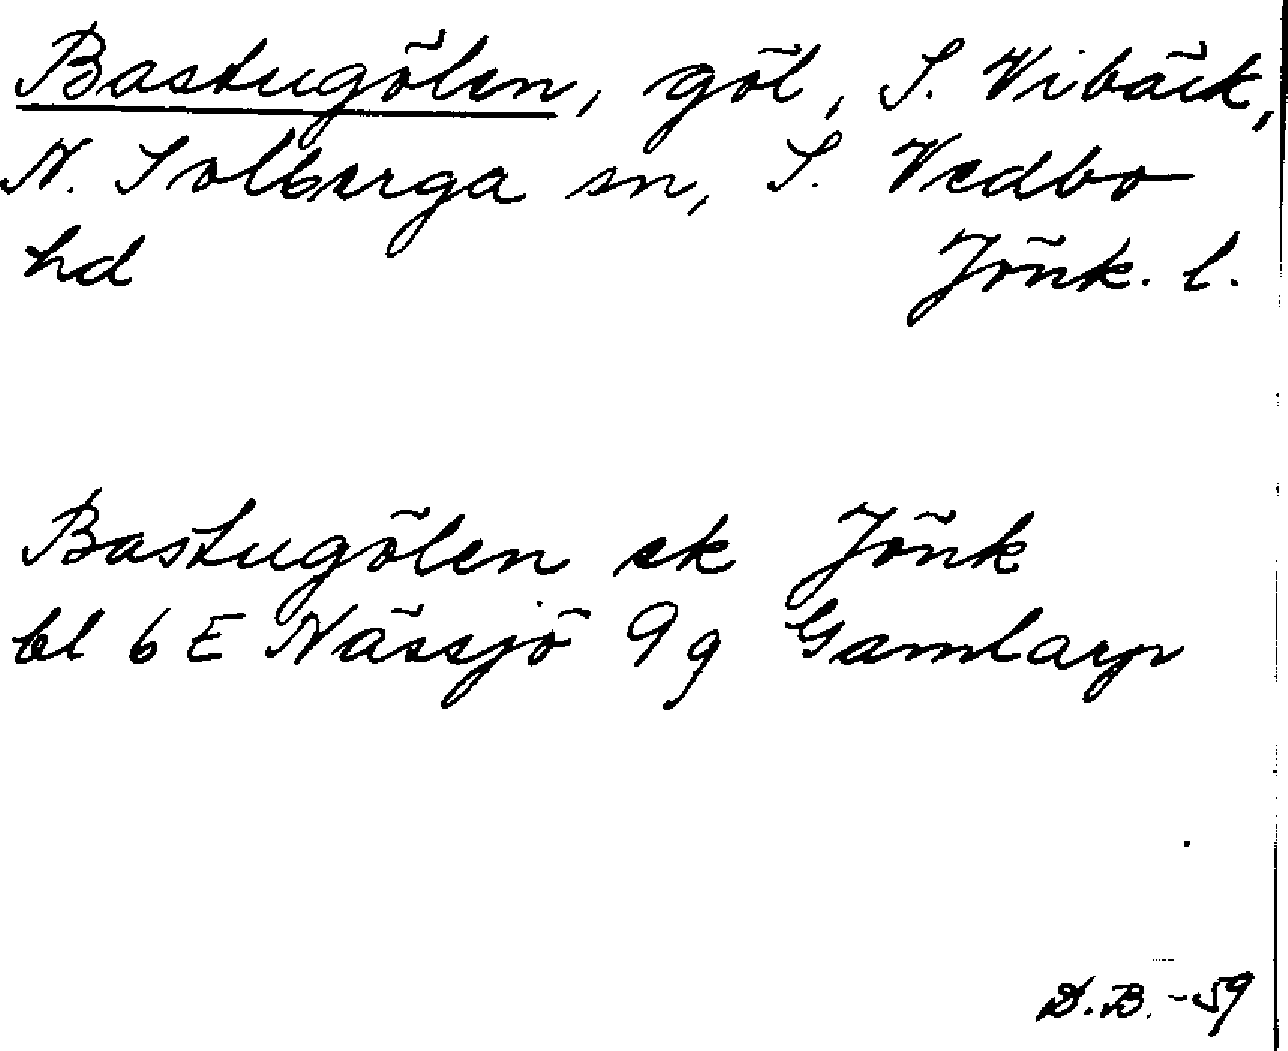 Bastugölen, göl, S. Vibäck,
N. Solberga sn, S. Vedbo
hd Jönk. l.
Bastugölen ek Jönk
bl 6 E Nässjö 9 g Gamlarp
D.B. -59